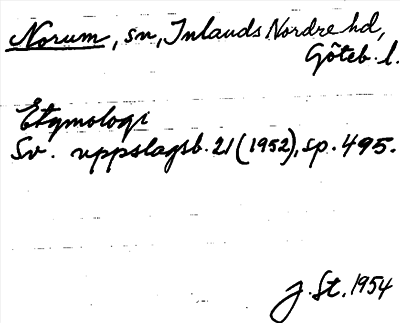 Norum, sn, Inlands Nordre hd,
Göteb. l.
Etymologi
Sv. uppslagsb. 21 (1952), sp. 495.
J. St. 1954